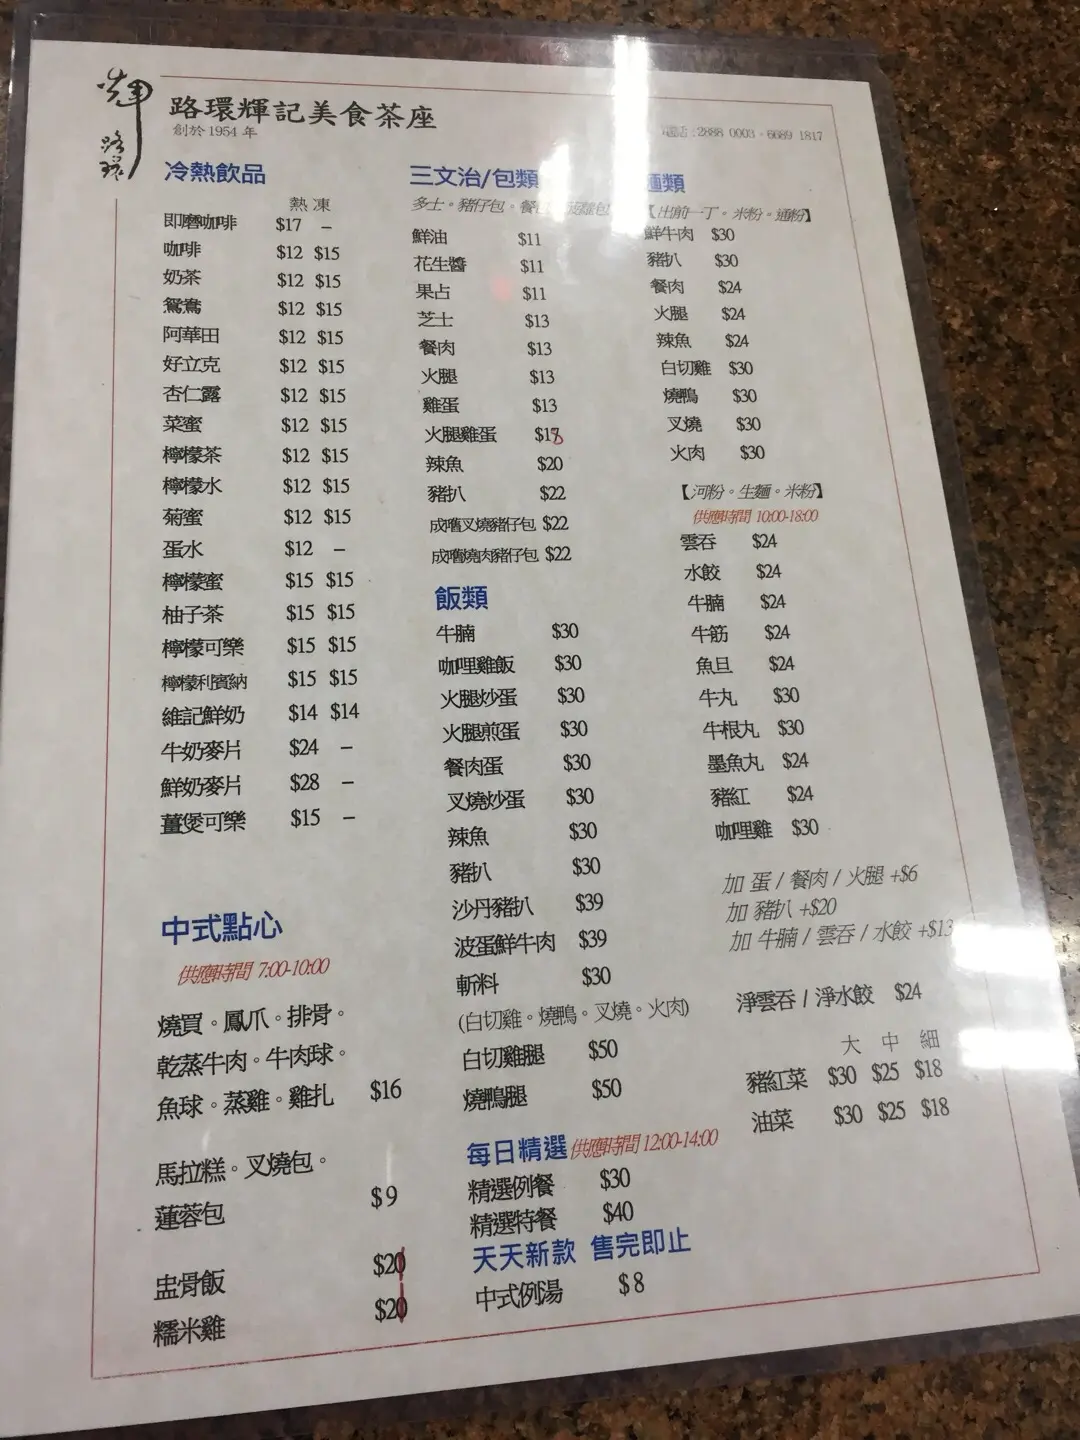 輝
路
環
路環輝記美食茶座
創於 1954 年
電話 : 2888 0003 · 6689 1817
冷熱飲品
熱 凍
即磨咖啡 $17 –
咖啡 $12 $15
奶茶 $12 $15
鴛鴦 $12 $15
阿華田 $12 $15
好立克 $12 $15
杏仁露 $12 $15
菜蜜 $12 $15
檸檬茶 $12 $15
檸檬水 $12 $15
菊蜜 $12 $15
蛋水 $12 –
檸檬蜜 $15 $15
柚子茶 $15 $15
檸檬可樂 $15 $15
檸檬利賓納 $15 $15
維記鮮奶 $14 $14
牛奶麥片 $24 –
鮮奶麥片 $28 –
薑煲可樂 $15 –
中式點心
供應時間 7:00-10:00
燒買。鳳爪。排骨。
乾蒸牛肉。牛肉球。
魚球。蒸雞。雞扎 $16
馬拉糕。叉燒包。
蓮蓉包 $9
盅骨飯 $20
糯米雞 $20
三文治/包類
多士。豬仔包。餐
鮮油 $11
花生醬 $11
果占 $11
芝士 $13
餐肉 $13
火腿 $13
雞蛋 $13
火腿雞蛋 $18
辣魚 $20
豬扒 $22
成嚿叉燒豬仔包 $22
成嚿燒肉豬仔包 $22
飯類
牛腩 $30
咖哩雞飯 $30
火腿炒蛋 $30
火腿煎蛋 $30
餐肉蛋 $30
叉燒炒蛋 $30
辣魚 $30
豬扒 $30
沙丹豬扒 $39
波蛋鮮牛肉 $39
斬料 $30
(白切雞。燒鴨。叉燒。火肉)
白切雞腿 $50
燒鴨腿 $50
每日精選 供應時間 12:00-14:00
精選例餐 $30
精選特餐 $40
天天新款 售完即止
中式例湯 $8
麵類
【出前一丁。米粉。通粉】
鮮牛肉 $30
豬扒 $30
餐肉 $24
火腿 $24
辣魚 $24
白切雞 $30
燒鴨 $30
叉燒 $30
火肉 $30
【河粉。生麵。米粉】
供應時間 10:00-18:00
雲吞 $24
水餃 $24
牛腩 $24
牛筋 $24
魚旦 $24
牛丸 $30
牛根丸 $30
墨魚丸 $24
豬紅 $24
咖哩雞 $30
加 蛋 / 餐肉 / 火腿 +$6
加 豬扒 +$20
加 牛腩 / 雲吞 / 水餃 +$13
淨雲吞 / 淨水餃 $24
大 中 細
豬紅菜 $30 $25 $18
油菜 $30 $25 $18